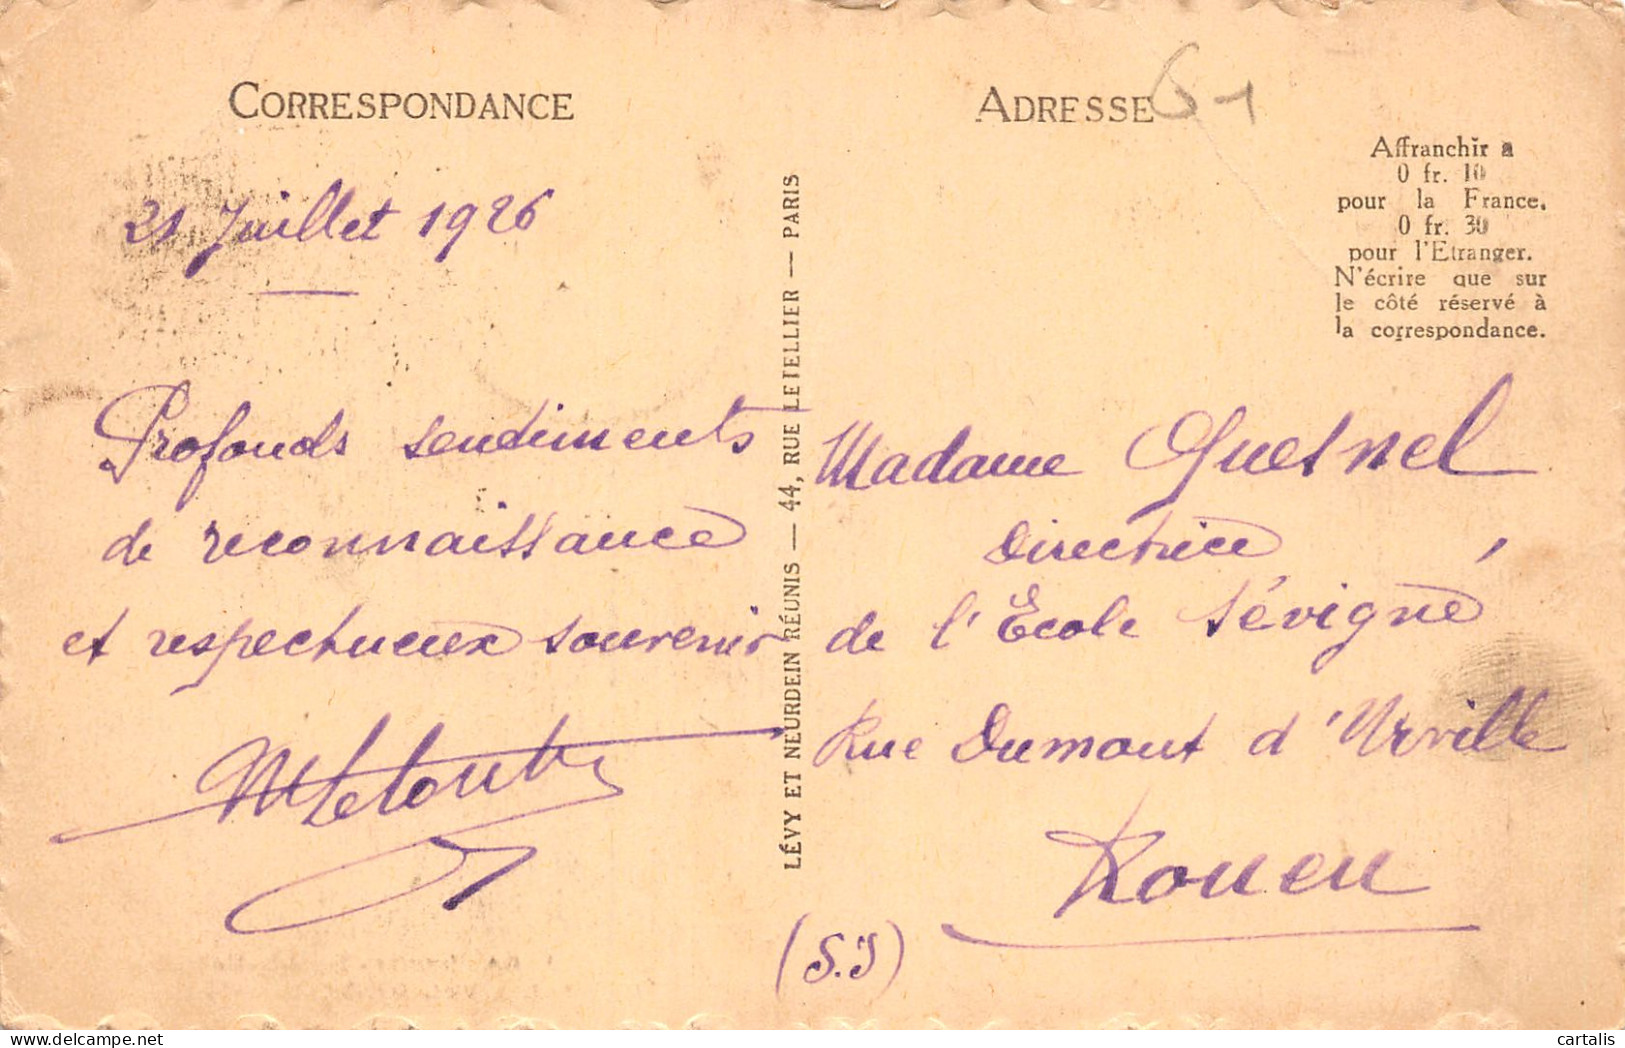 CORRESPONDANCE
21 Juillet 1926
Profonds sentiments
de reconnaissance
et respectueux souvenir
LÉVY ET NEURDEIN RÉUNIS — 44, RUE LETELLIER — PARIS
ADRESSE
Affranchir a
0 fr. 10
pour la France.
0 fr. 30
pour l'Etranger.
N'écrire que sur
le côté réservé à
la correspondance.
Madame Quesnel
Directrice
de l'École Sévigné
Rue Dumont d'Urville
Rouen
(S.I)
cartalis